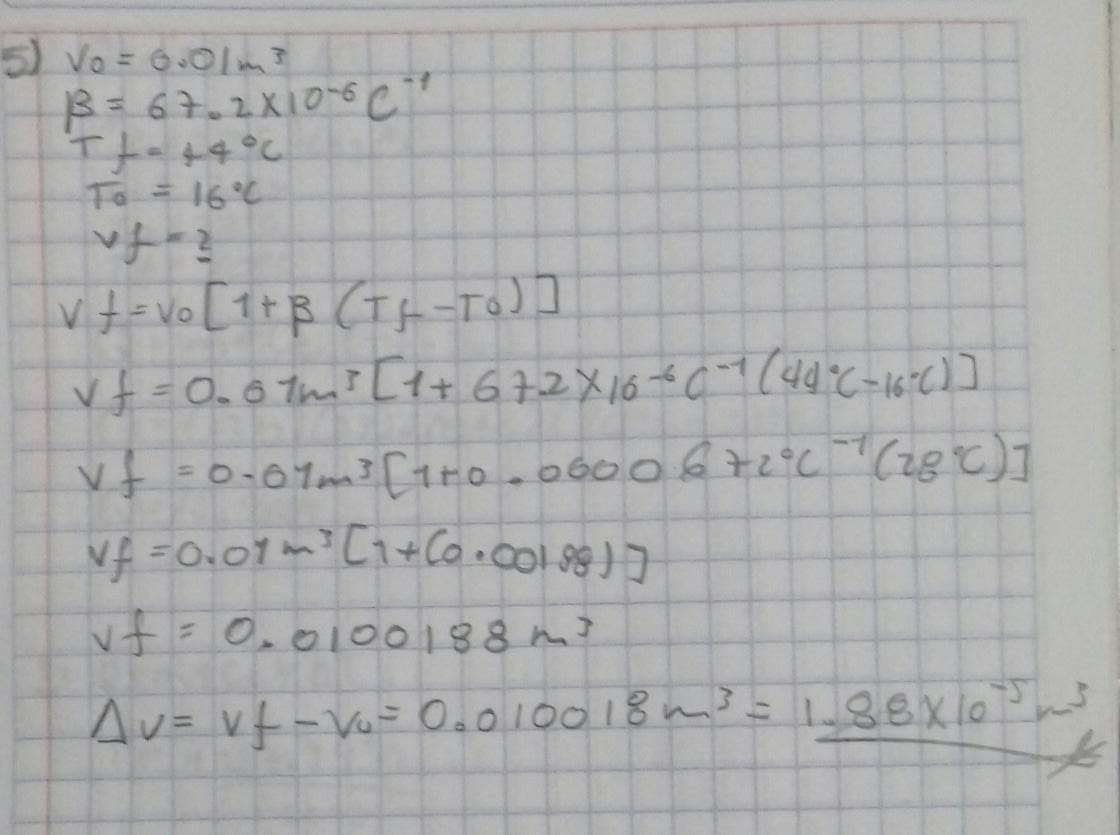 5) Vo = 0.01m³
β = 67.2X10⁻⁶C⁻¹
Tf = 44°C
To = 16°C
Vf = ?
Vf = Vo [1 + β (Tf - To)]
Vf = 0.01m³ [1 + 67.2X10⁻⁶C⁻¹ (44°C - 16°C)]
Vf = 0.01m³ [1 + 0.0000672°C⁻¹ (28°C)]
Vf = 0.01m³ [1 + (0.00188)]
Vf = 0.0100188m³
Δv = Vf - Vo = 0.010018m³ = 1.88X10⁻⁵m³